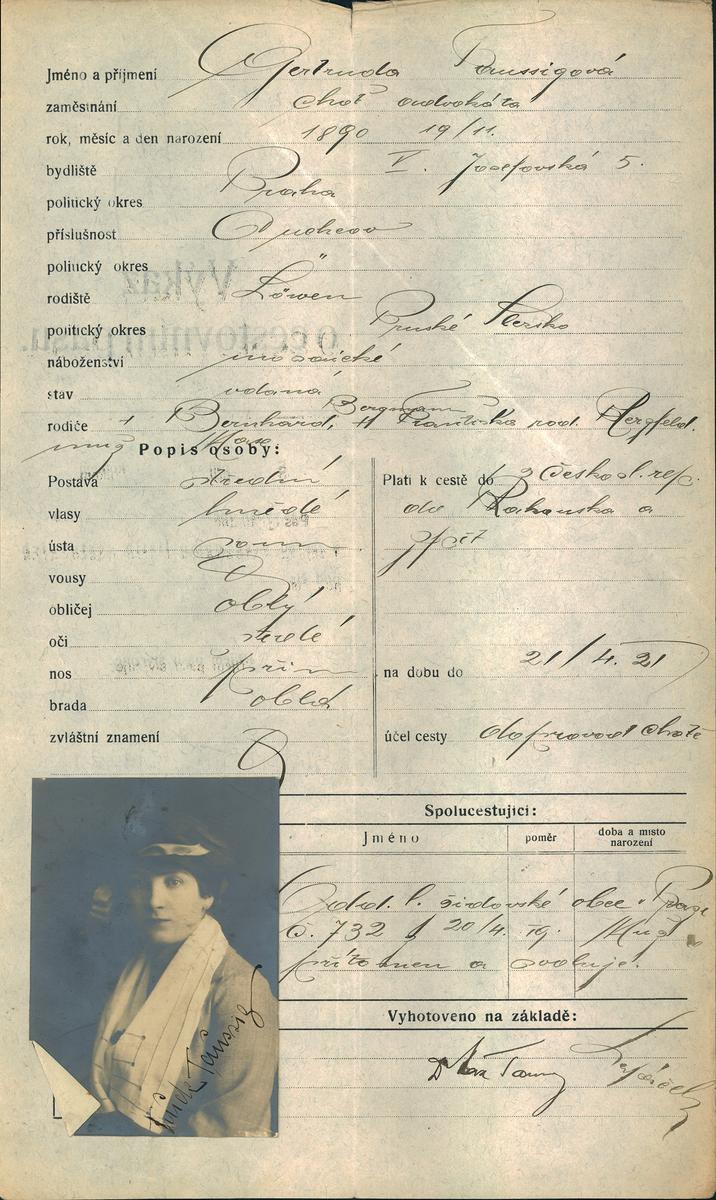 Jméno a příjmení Gertruda Taussigová
zaměstnání choť advokáta
rok, měsíc a den narození 1890 19/11.
bydliště V. Josefovská 5.
politický okres Praha
příslušnost Duchcov
politický okres "
rodiště Löwen
politický okres Pruské Slezsko
náboženství mosaické
stav vdaná
rodiče † Bernhard, Bergmann † Františka rod. Hergfeld.
muž Max
Popis osoby:
Postava střední
vlasy hnědé
ústa
vousy
obličej oblý
oči šedé
nos
brada oblá
zvláštní znamení
Platí k cestě do Českosl. rep.
do Rakouska a
zpět
na dobu do 21/4. 21
účel cesty doprovod chotě
Spolucestující:
Jméno poměr doba a místo narození
Odd. l. židovské obce v Praze
č. 732 20/4. 19. Muž
přítomen a svoluje.
Vyhotoveno na základě:
Trude Taussig